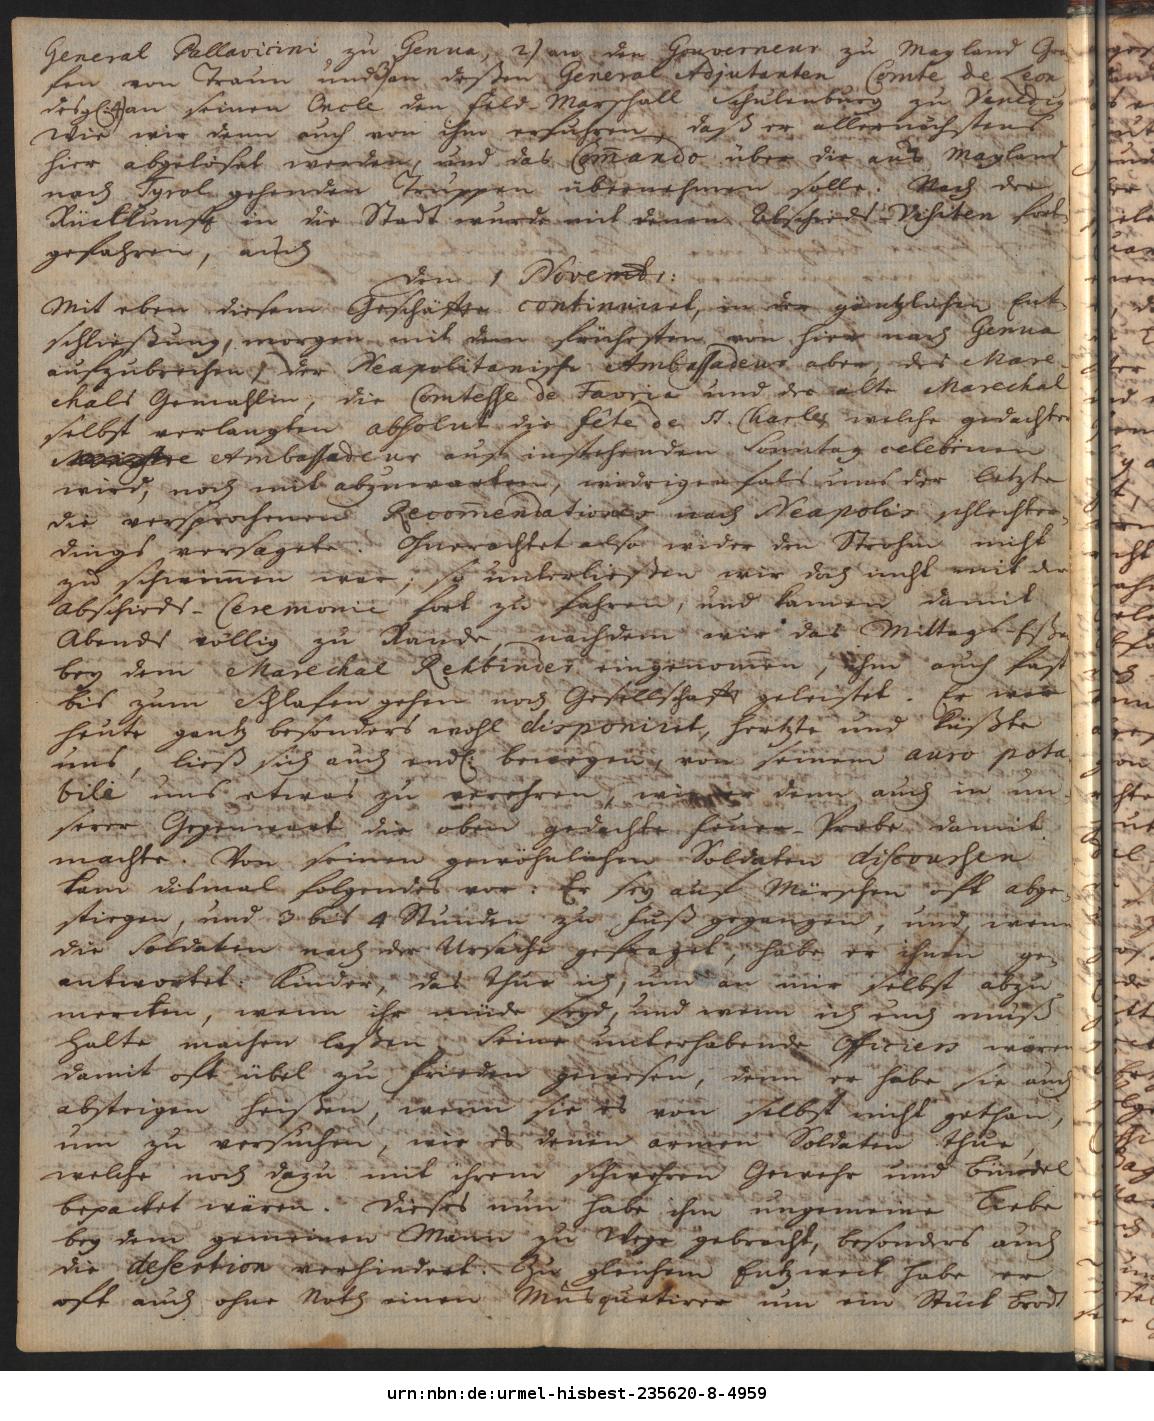 General Pallavicini zu Genua, 2) an den Gouverneur zu Mayland Gra-
fen von Traun und 3) an deßen General Adjutanten Comte de Leon
desgl. an seinen Oncle den Feld-Marschall Schulenburg zu Venedig
Wie wir denn auch von ihm erfuhren, daß er allernächstens
hier abgelöset werden, und das Com̄ando über die aus Mayland
nach Tyrol gehenden Truppen übernehmen solle. Nach der
Rückkunft in die Stadt wurde mit denen Abschieds-Visiten fort-
gefahren, auch
den 1 Novembr:
Mit eben diesem Geschäffte continuiret, in der gäntzlichen Ent-
schließung, morgen mit dem frühesten von hier nach Genua
aufzubrechen, der Neapolitanische Ambassadeur aber, des Mare-
chals Gemahlin, die Comtesse de Favria und der alte Marechal
selbst verlangten absolut die fête de St. Charles welche gedachter
Ambassadeur auf instehenden Sonntag celebriren
wird, noch mit abzuwarten, widrigenfals uns der letzte
die versprochenen Recom̄endationes nach Neapolis schlechter-
dings versagete. Ohnerachtet also wider den Strohm nicht
zu schwim̄en war; so unterließen wir doch nicht mit der
Abschieds-Ceremonie fort zu fahren, und kamen damit
Abends völlig zu Rande, nachdem wir das Mittags-Eßen
bey dem Marechal Rehbinder eingenom̄en, ihm auch fast
bis zum Schlafen gehen noch Gesellschafft geleistet. Er war
heute gantz besonders wohl disponiret, hertzte und küßte
uns, ließ sich auch endl. bewegen, von seinem auro pota-
bile uns etwas zu verehren, wie er denn auch in un-
serer Gegenwart die oben gedachte Feuer-Probe damit
machte. Von seinen gewöhnlichen Soldaten discourßen
kam dismal folgendes vor: Er sey auf Märschen oft abge-
stiegen, und 3 bis 4 Stunden zu Fuß gegangen, und, wenn
die Soldaten nach der Ursache gefraget, habe er ihnen ge-
antwortet: Kinder, das thue ich, um an mir selbst abzu-
mercken, wenn ihr müde seyd, und wenn ich euch muß
Halte machen laßen. Seine unterhabende Officiers wären
damit oft übel zu frieden gewesen, denn er habe sie auch
absteigen heißen, wenn sie es von selbst nicht gethan,
um zu versuchen, wie es denen armen Soldaten thue,
welche noch dazu mit ihrem schwehren Gewehr und Bündel
bepacket wären. Dieses nun habe ihm ungemeine Liebe
bey dem gemeinen Mann zu Wege gebracht, besonders auch
die desertion verhindert. Zu gleichem Entzweck habe er
oft auch ohne Noth einen Musquetirer um ein Stück Brodt
urn:nbn:de:urmel-hisbest-235620-8-4959